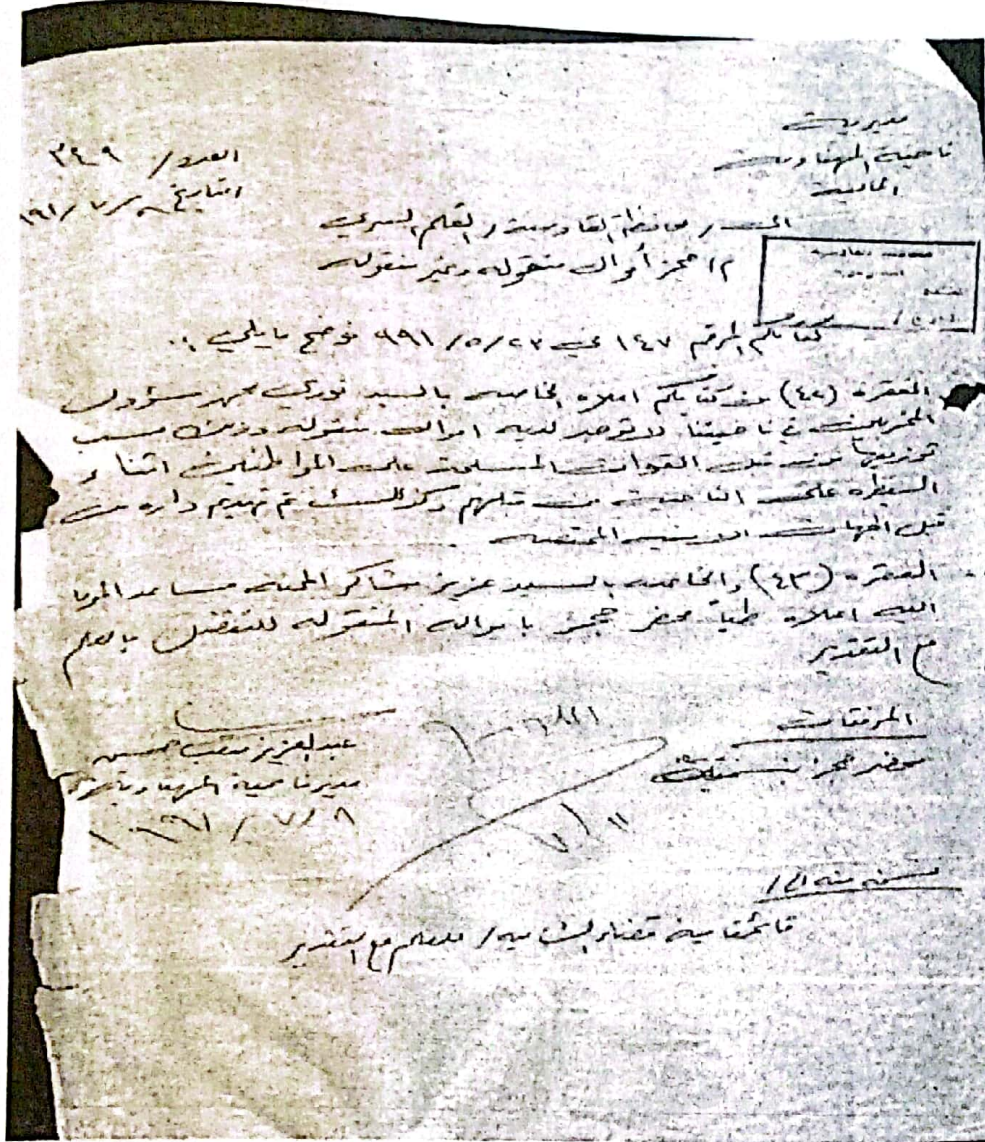 مديرية
ناحية المهناوية
المالية
العدد / ٣٤٩
التاريخ ٨ / ٧ / ٩٩١
الى / محافظة القادسية / القلم السري
م / حجز أموال منقوله وغير منقوله
كتابكم المرقم ١٤٧ في ٢٧ / ٥ / ٩٩١ نوضح مايلي :.
الفقره (٤٢) من كتابكم اعلاه الخاصه بالسيد نوري مسؤول
المخربين في ناحيتنا لاتوجد لديه اموال منقوله وذلك بسبب
توزيعها من قبل القوات المسلحة على المواطنين اثناء
السيطره على الناحية من قبلهم وكذلك تم تهديم داره من
قبل الجهات الامنيه المختصه
الفقره (٤٣) والخاصه بالسيد عزيز شاكر مساعد الموما
اليه اعلاه طياً محضر حجز بامواله المنقوله للتفضل بالعلم
مع التقدير
المرفقات
محضر حجز بنسختين
عبدالعزيز
مدير ناحية المهناوية
٨ / ٧ / ١٩٩١
١١ / ٧
نسخه منه الى /
قائمقامية قضاء الشاميه / للعلم مع التقدير